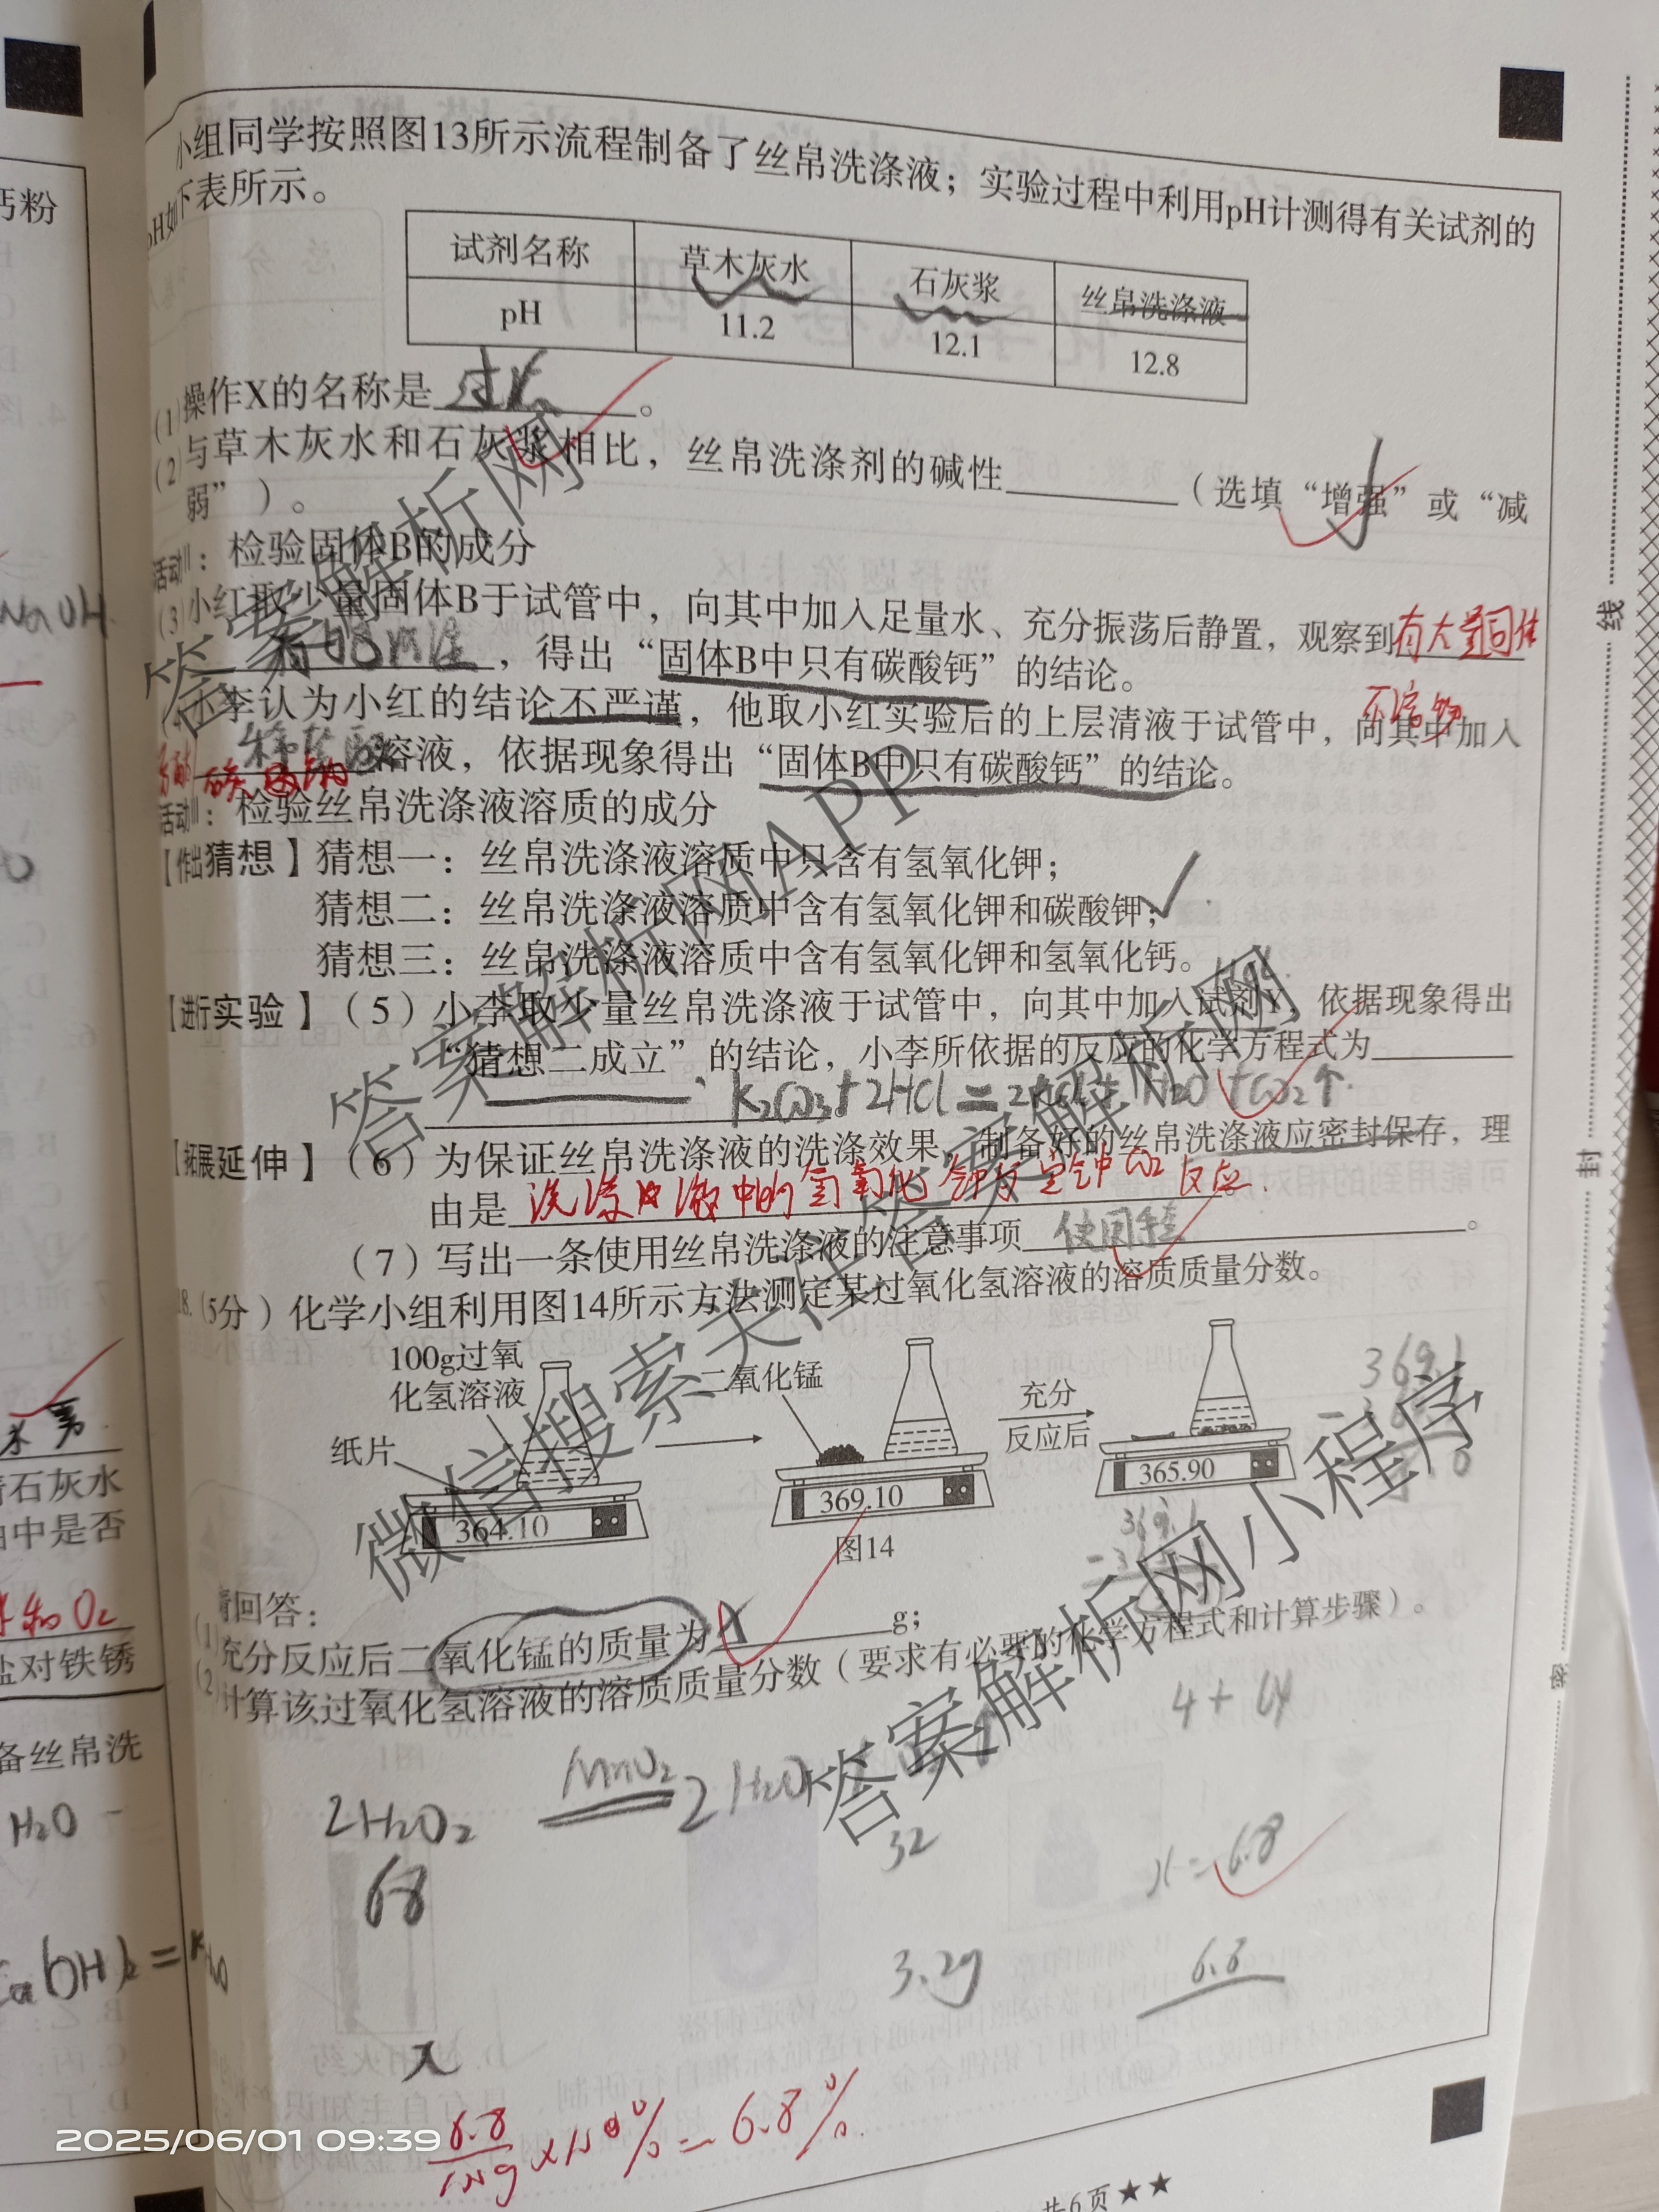 小组同学按照图13所示流程制备了丝帛洗涤液；实验过程中利用pH计测得有关试剂的
pH如下表所示。
试剂名称 草木灰水 石灰浆 丝帛洗涤液
pH 11.2 12.1 12.8
(1)操作X的名称是 过滤 。
(2)与草木灰水和石灰浆相比，丝帛洗涤剂的碱性（选填“增强”或“减
弱”）。
活动II：检验固体B的成分
(3)小红取少量固体B于试管中，向其中加入足量水、充分振荡后静置，观察到有大量固体
不溶物
，得出“固体B中只有碳酸钙”的结论。
李认为小红的结论不严谨，他取小红实验后的上层清液于试管中，向其中加入
碳酸钠
溶液，依据现象得出“固体B中只有碳酸钙”的结论。
活动III：检验丝帛洗涤液溶质的成分
【作出猜想】猜想一：丝帛洗涤液溶质中只含有氢氧化钾；
猜想二：丝帛洗涤液溶质中含有氢氧化钾和碳酸钾；
猜想三：丝帛洗涤液溶质中含有氢氧化钾和氢氧化钙。
【进行实验】（5）小李取少量丝帛洗涤液于试管中，向其中加入试剂Y，依据现象得出
“猜想二成立”的结论，小李所依据的反应的化学方程式为
K₂CO₃+2HCl=2KCl+H₂O+CO₂↑
【拓展延伸】（6）为保证丝帛洗涤液的洗涤效果，制备好的丝帛洗涤液应密封保存，理
由是 洗涤液中的氢氧化钾与空气中CO₂反应.
（7）写出一条使用丝帛洗涤液的注意事项 使用手套 。
18.(5分）化学小组利用图14所示方法测定某过氧化氢溶液的溶质质量分数。
100g过氧
化氢溶液
纸片
364.10
二氧化锰
369.10
充分
反应后
365.90
图14
369.1
请回答：
(1)充分反应后二氧化锰的质量为 g；
(2)计算该过氧化氢溶液的溶质质量分数（要求有必要的化学方程式和计算步骤）。
4+64
2H₂O₂ MnO₂ 2H₂O+
68
32
x=6.8
3.2g
x
6.8 ×100%=6.8%
2025/06/01 09:39
共6页★★
线
封
密
钙粉
NaOH
清石灰水
中是否
和O₂
盐对铁锈
备丝帛洗
H₂O
答案解析网
答案解析网APP
答案解析网
微信搜索关注答案解析网
答案解析网小程序